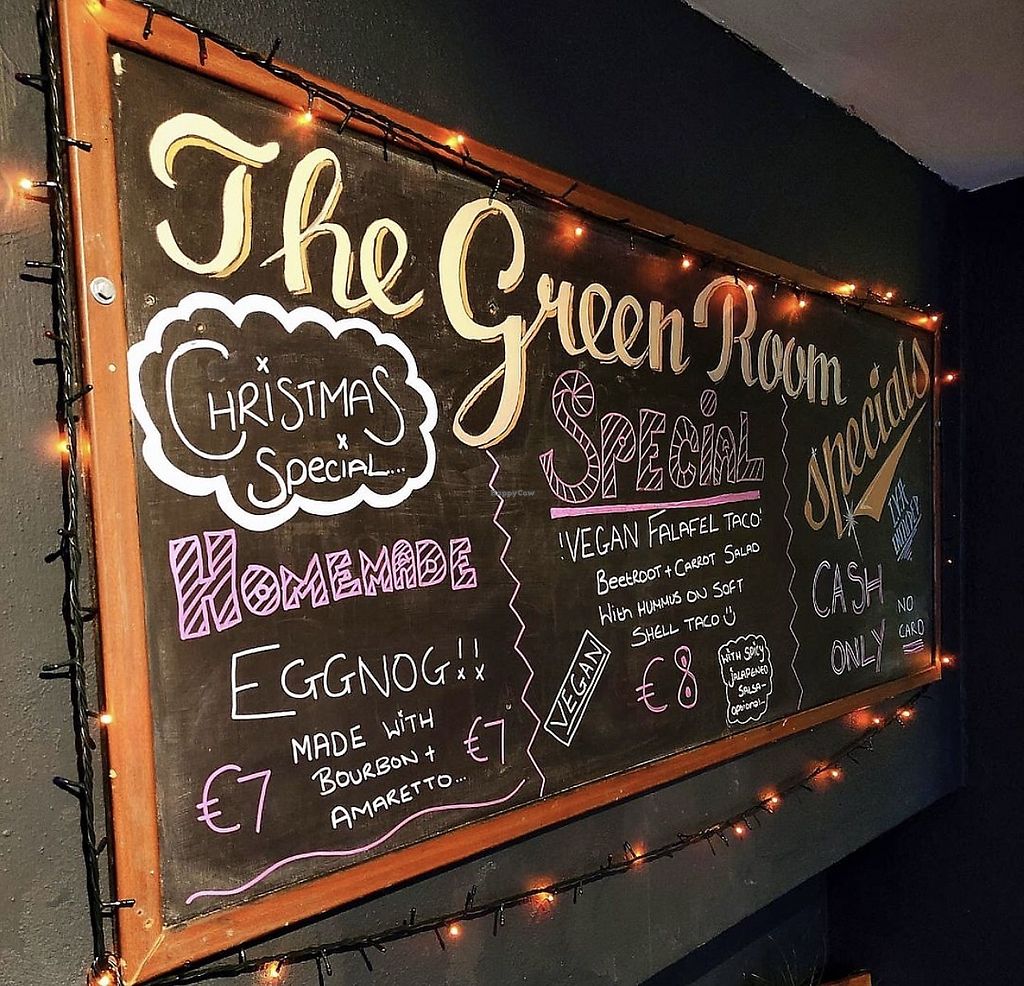 The Green Room
specials
CHRISTMAS
SPECIAL...
HOMEMADE
EGGNOG!!
MADE WITH
BOURBON +
AMARETTO...
€7
€7
SPECIAL
'VEGAN FALAFEL TACO'
BEETROOT + CARROT SALAD
WITH HUMMUS ON SOFT
SHELL TACO
VEGAN
€8
WITH SPICY
JALAPENEO
SALSA-
OPTIONAL-
CASH
ONLY
NO
CARD
HappyCow